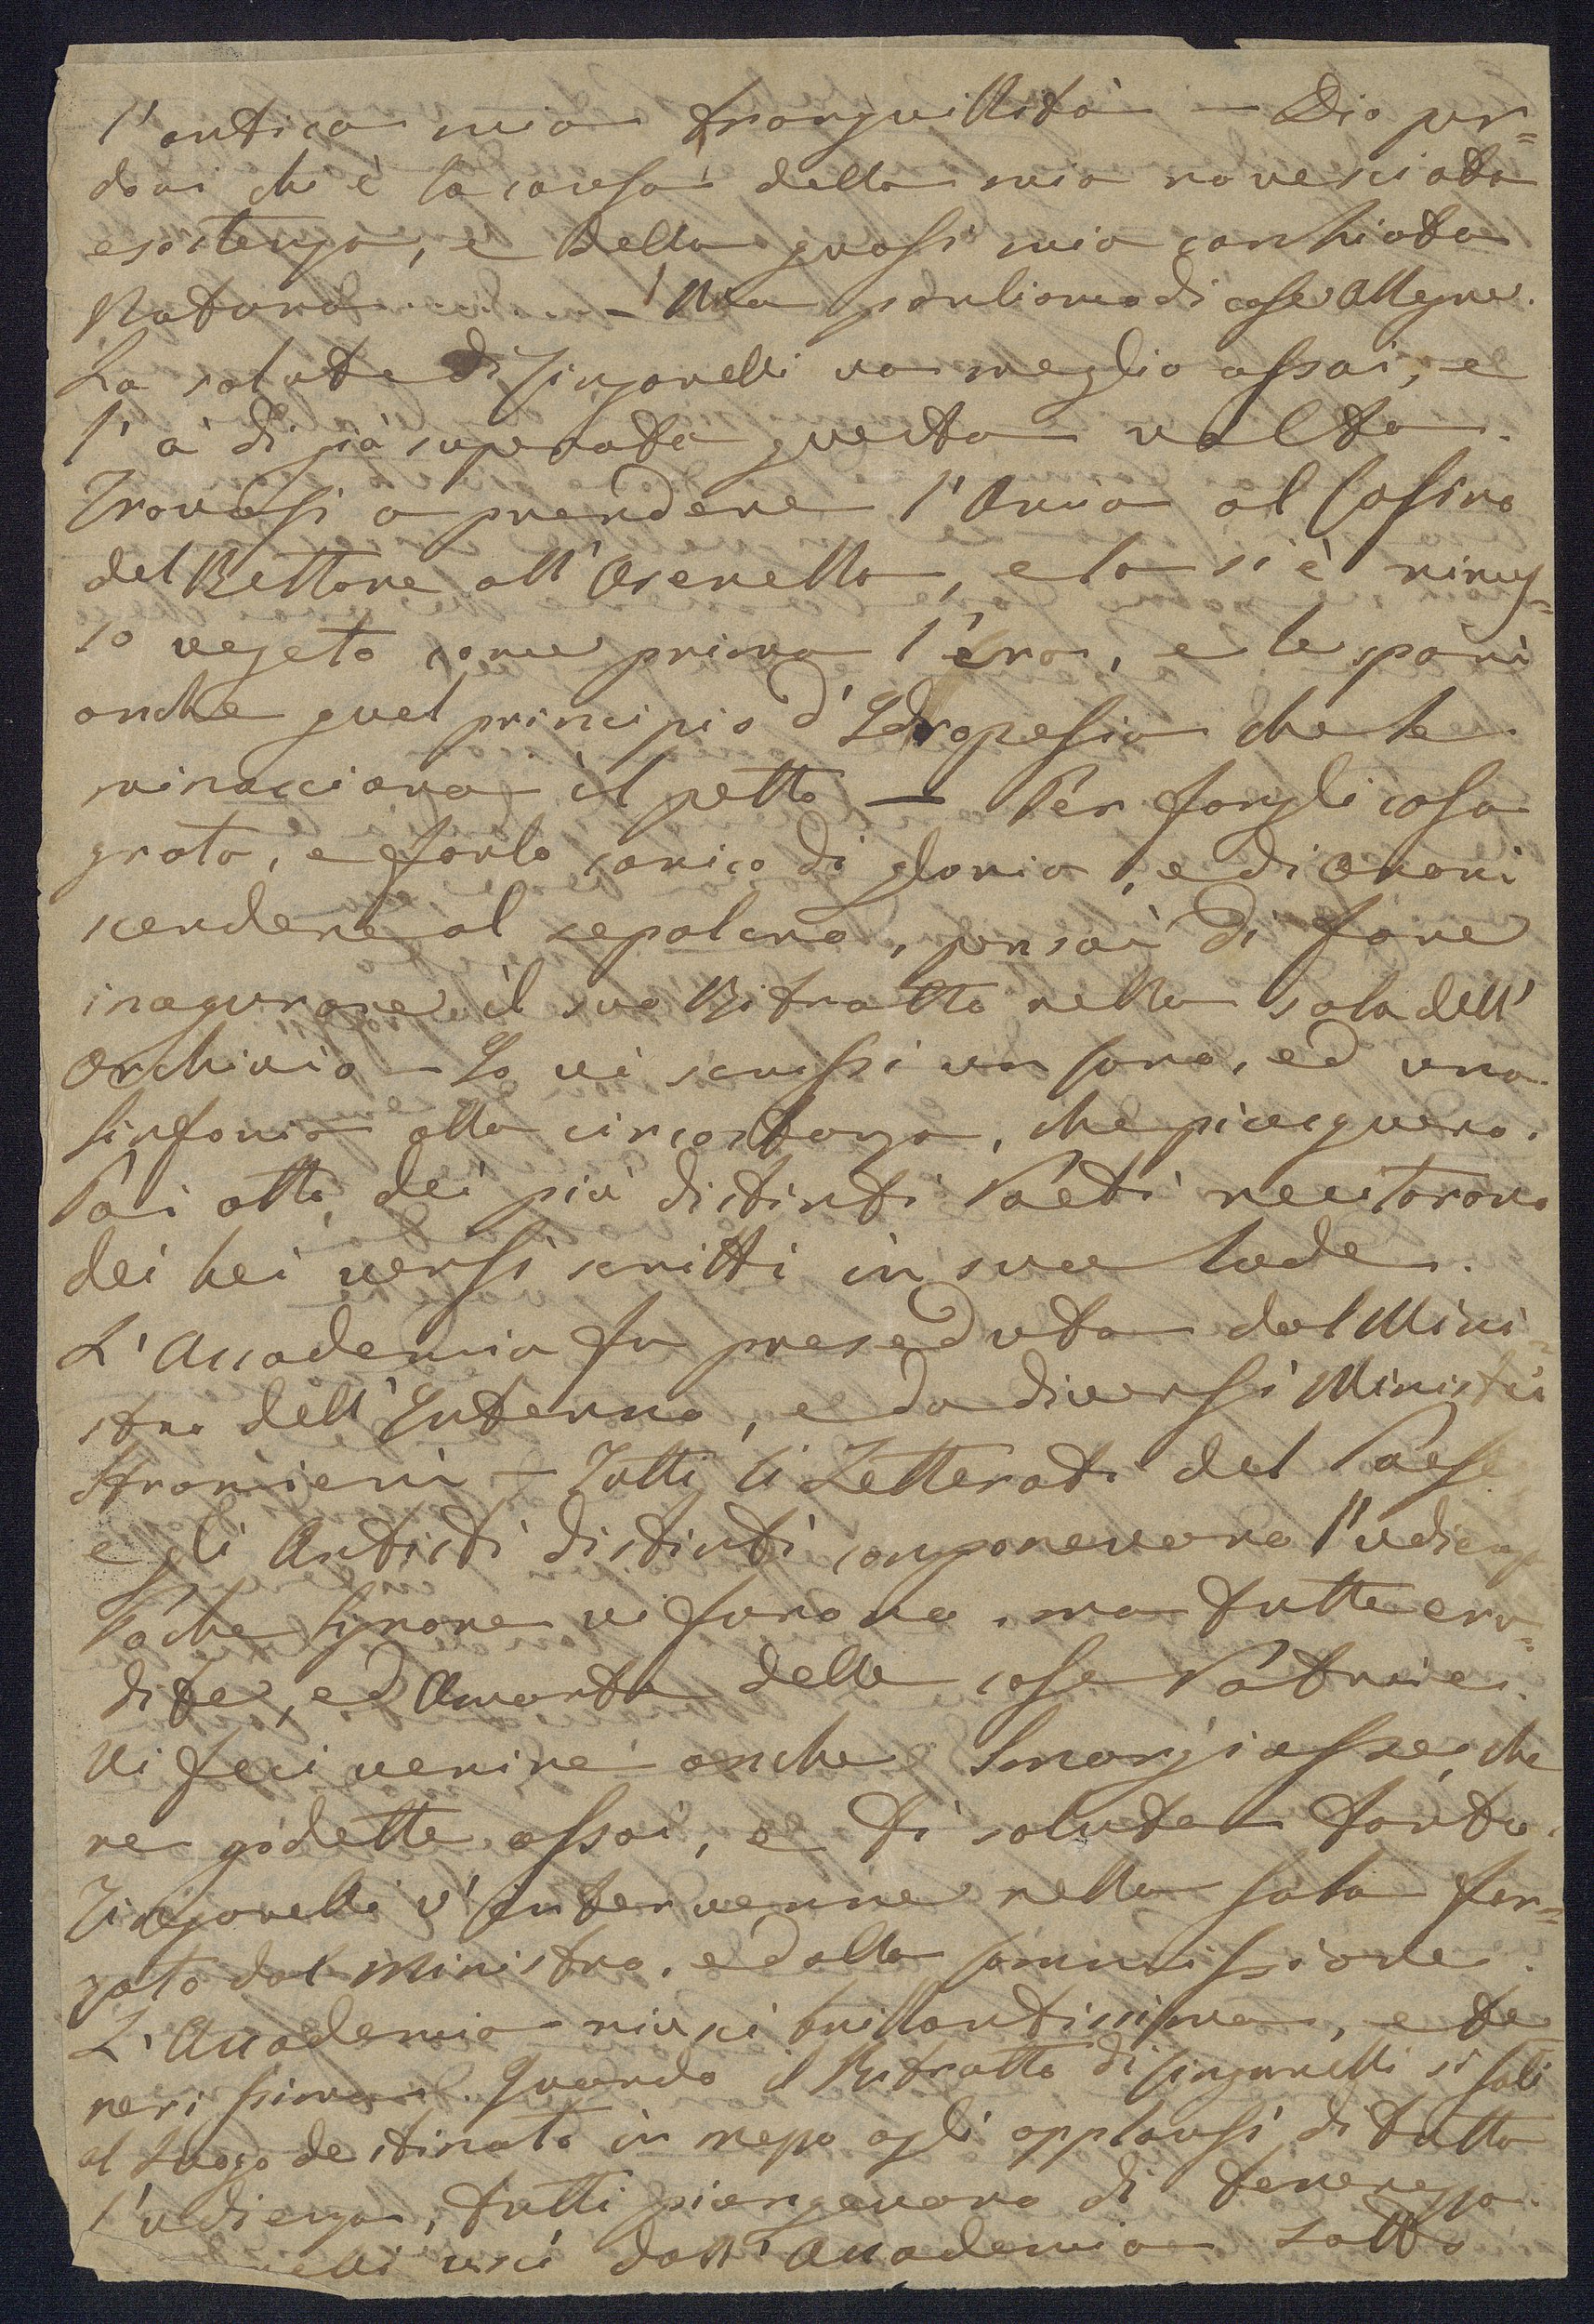 l'antica mia tranquillità – Dio per=
doni chi è la causa della mia rovesciata
esistenza, e della quasi mia canbiata
Natura ..... – Ma parliamo di cose allegre.
La salute di Zingarelli va meglio assai, e
l'à di già superata questa volta.
Trovasi a prendere l'Aria al Casino
del Rettore all'Arenella, e la si è rimes=
so vegeto come prima l'era, e le sparì
anche quel principio d'Idropesia che le
minacciava il petto – Per fargli cosa
grata, e farlo carico di gloria, e di Onori
scendere al sepolcro, pensai di fare
inagurare il suo Ritratto nella sala dell'
Archivio – Io vi scrissi un Coro, ed una
Sinfonia alla circostanza, che piacquero.
Poi otto dei più distinti Poeti recitorono
dei bei versi scritti in sua lode.
L'Accademia fu preseduta dal Mini=
stro dell'Interno, e da diversi Ministri
Stranieri – Tutti li Letterati del Paese
e gli Artisti distinti componevano l'udienz
Poche Signore vi furono, ma tutte eru=
dite, ed Amanti delle cose Patrie.
Vi feci venire anche Smargiasse, che
ne godette assai, e ti saluta tanto.
Zingarelli v'intervenne nella sala for=
zato dal Ministro, e dalla Commissione.
L'Accademia riuscì brillantissima, e te
nerissima. Quando il Ritratto di Zingarelli si salì
al luogo destinato in mezzo agli applausi di tutta
l'udienza, tutti piangevano di tenerezza.
elli uscì dall'Accademia sotto